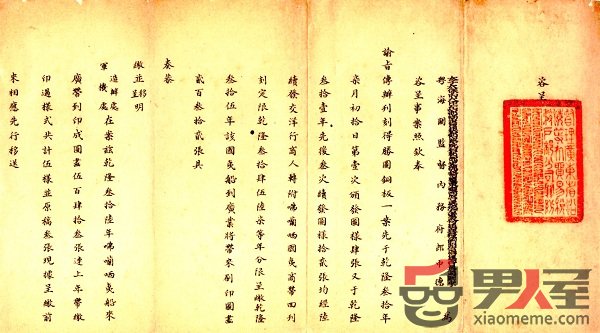 咨呈
粤海關監督內務府郎中德 為
咨呈事案照欽奉
諭旨傳辦刊刻得勝圖銅板一案先于乾隆叁拾年
柒月初拾日第壹次頒發圖樣肆張又于乾隆
叁拾壹年先後叁次續發圖樣拾貳張均經陸
續發交洋行商人轉附咈囒哂國夷商帶回刊
刻定限乾隆叁拾肆伍陸柒等年分限呈繳乾隆
叁拾伍年該國夷船到廣業將帶來刷印圖畫
貳百叁拾貳張具
奏恭
繳並呈移明
軍機處造辦處在案茲乾隆叁拾陸年咈囒哂夷船來
廣帶到印成圖畫伍百肆拾叁張連上年帶繳
印過樣式共計伍樣並原稿叁張現據呈繳前
來相應先行移送
男人屋
xiaomeme.com